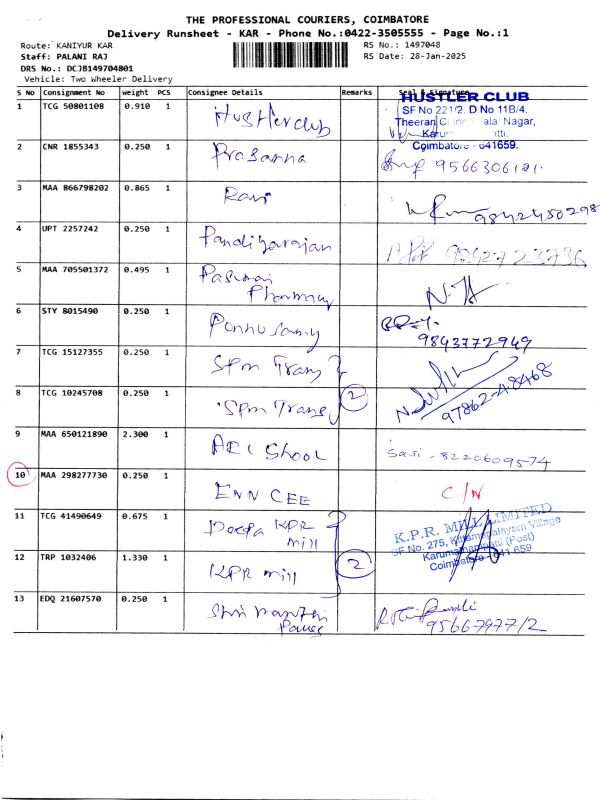 THE PROFESSIONAL COURIERS, COIMBATORE
Delivery Runsheet - KAR - Phone No.:0422-3505555 - Page No.:1
Route: KANIYUR KAR
RS No.: 1497048
Staff: PALANI RAJ
RS Date: 28-Jan-2025
DRS No.: DCJB149704801
Vehicle: Two Wheeler Delivery
S No Consignment No Weight PCS Consignee Details Remarks Seal & Signature
1 TCG 50801108 0.910 1 Hustlerclub
HUSTLER CLUB
SF No 221/2. D No 11B/4,
Theeran Nagar,
Coimbatore - 641659.
2 CNR 1855343 0.250 1 Prasanna 9566306121.
3 MAA 866798202 0.865 1 Ravi 9842450298
4 UPT 2257242 0.250 1 Pandiyarajan 9842723736
5 MAA 705501372 0.495 1 Pasumai
Pharmacy
6 STY 8015490 0.250 1 Ponnusamy
9843772949
7 TCG 15127355 0.250 1 Spm Trans
8 TCG 10245708 0.250 1 Spm Trans 2 97862-48468
9 MAA 650121890 2.300 1 School Sasi - 8220609574
10 MAA 298277730 0.250 1 ENN CEE C/N
11 TCG 41490649 0.675 1 Deepa KPR
mill
K.P.R. MILL LIMITED
SF No. 275, Kittampalayam Village
Karumathampatti (Post)
Coimbatore - 641 659
12 TRP 1032406 1.330 1 KPR mill 2
13 EDQ 21607570 0.250 1 Shri
9566797712